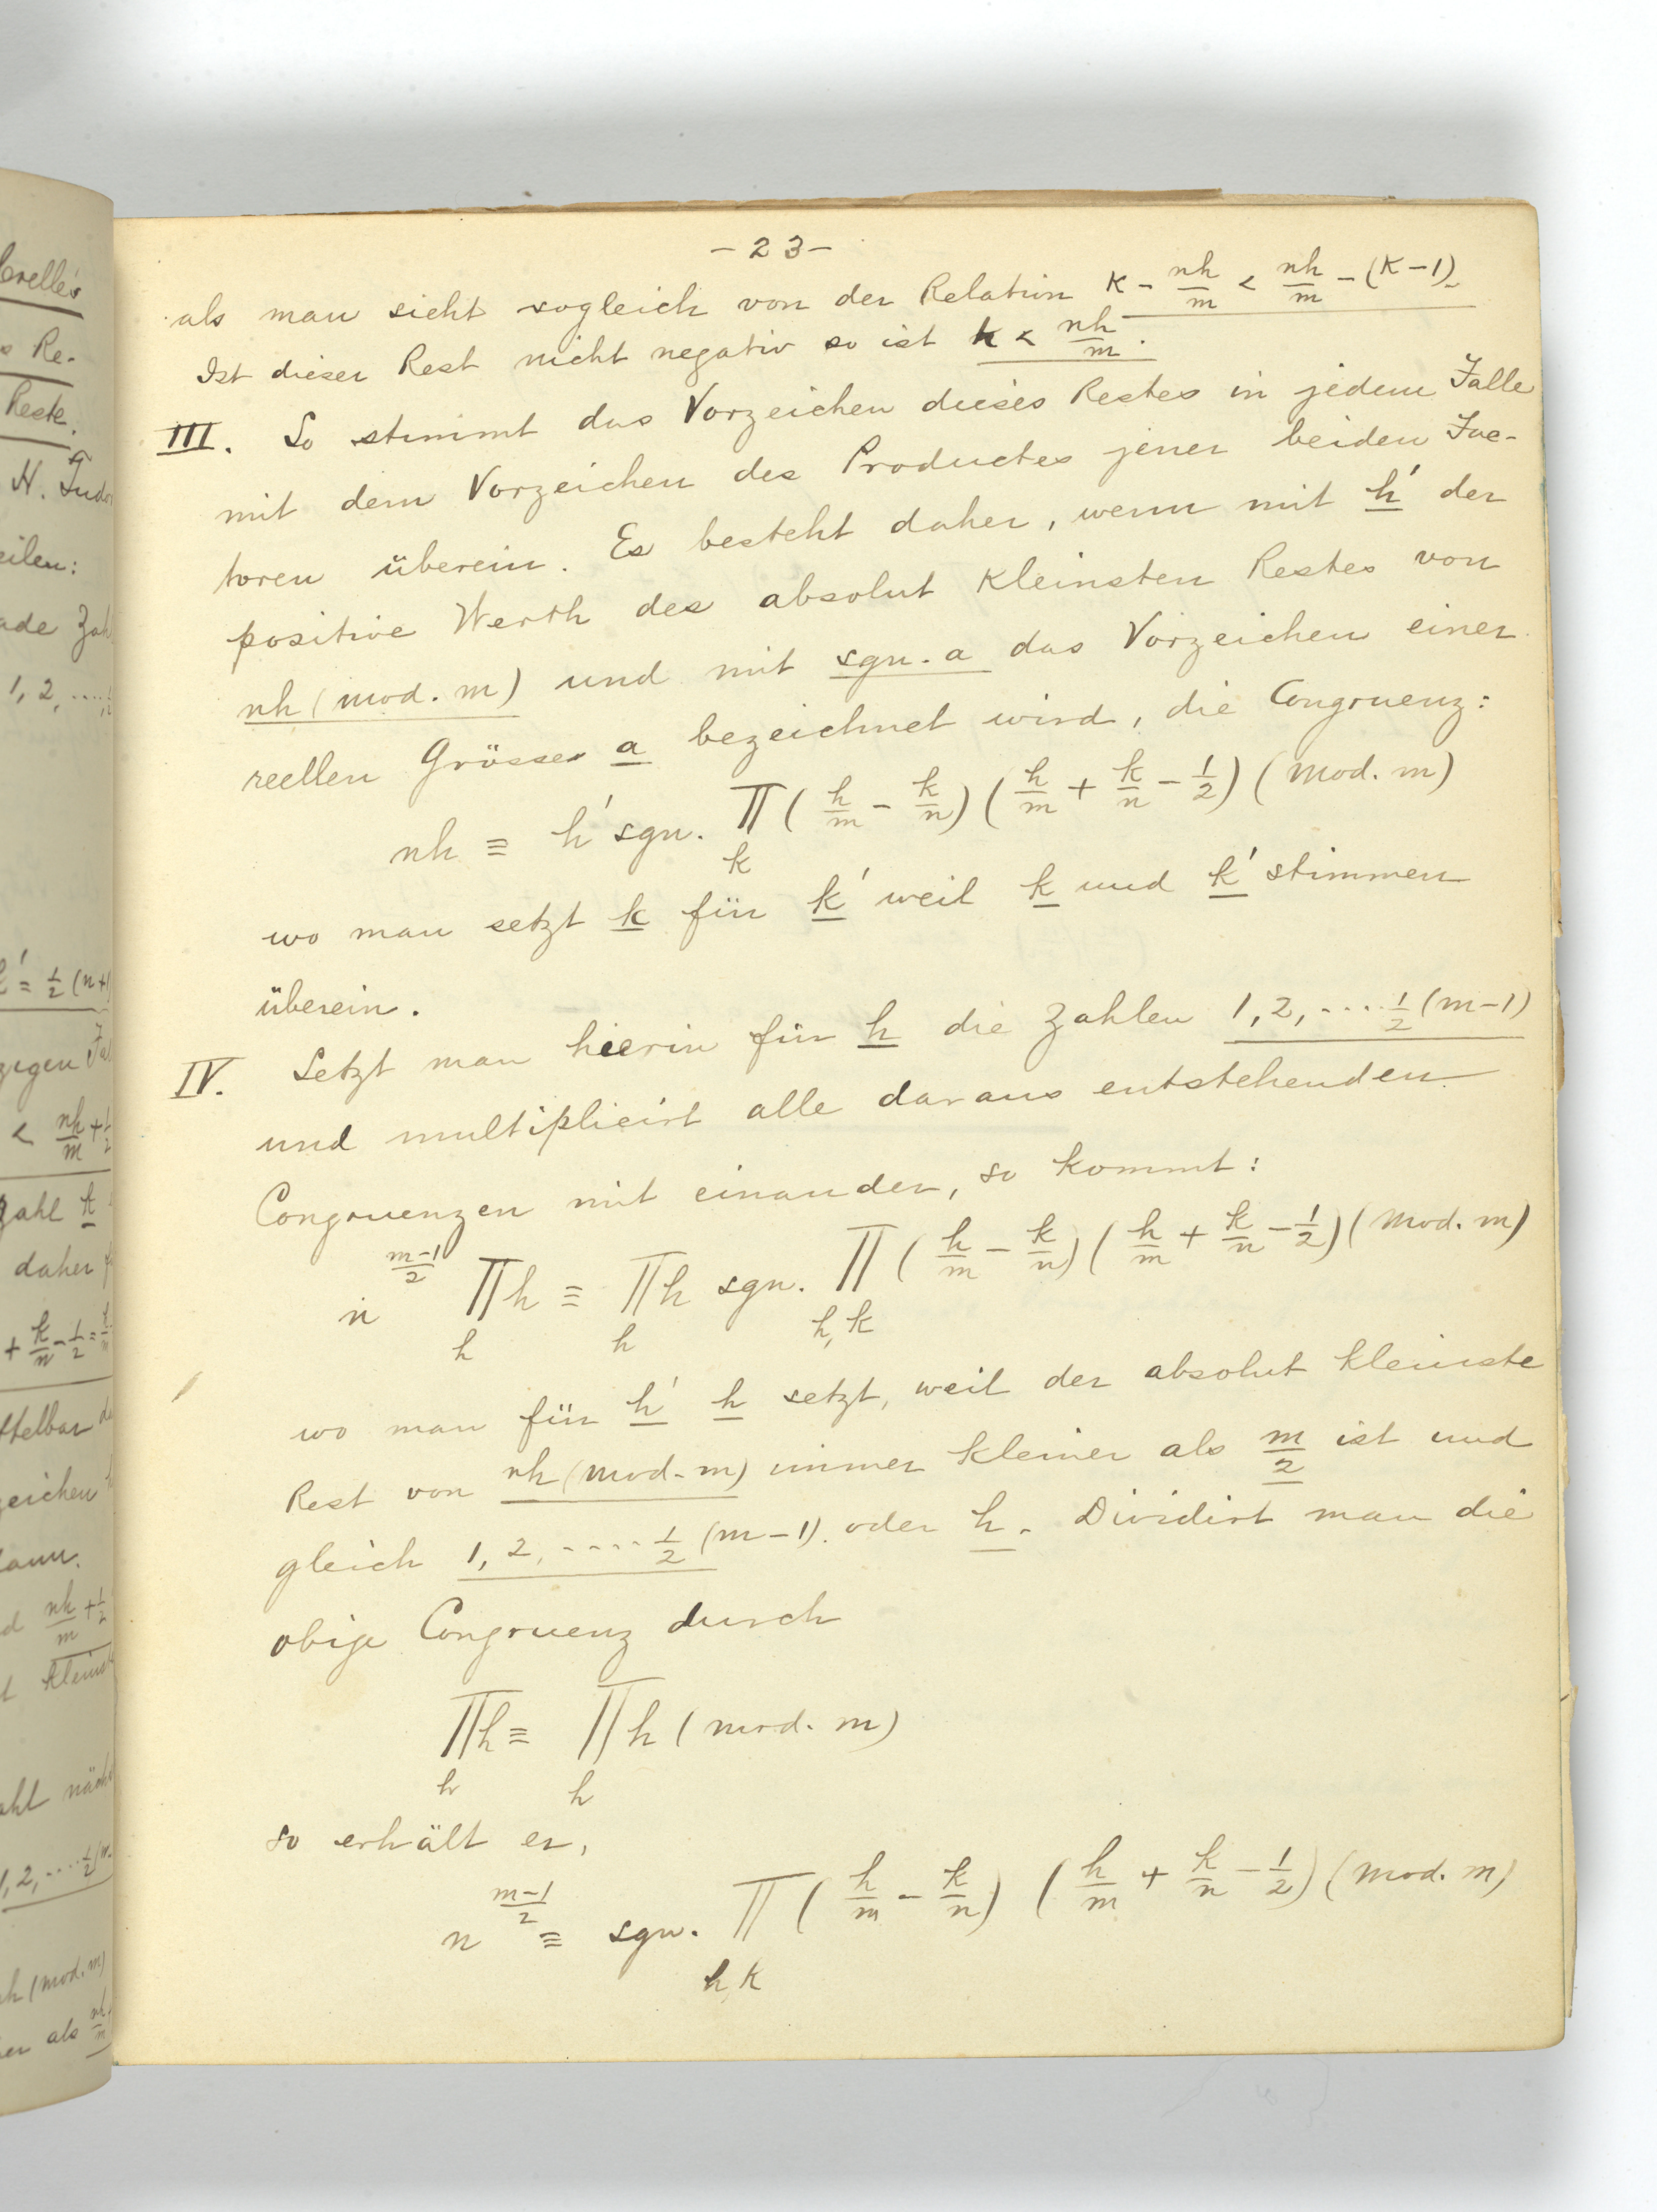 -23-
als man sieht sogleich von der Relation k - nh/m < nh/m - (k-1).
Ist dieser Rest nicht negativ so ist k < nh/m.
III. So stimmt das Vorzeichen dieses Restes in jedem Falle
mit dem Vorzeichen des Productes jener beiden Fac-
toren überein. Es besteht daher, wenn mit h' der
positive Werth des absolut kleinsten Restes von
nh (mod. m) und mit sgn. a das Vorzeichen einer
reellen Grösse a bezeichnet wird, die Congruenz:
nh ≡ h' sgn. Π (h/m - k/n)(h/m + k/n - 1/2) (mod. m)
k
wo man setzt k für k' weil k und k' stimmen
überein.
IV. Setzt man hierin für h die Zahlen 1, 2, .... 1/2 (m-1)
und multiplicirt alle daraus entstehenden
Congruenzen mit einander, so kommt:
n^((m-1)/2) Πh ≡ Πh sgn. Π (h/m - k/n)(h/m + k/n - 1/2) (mod. m)
h h h, k
wo man für h' h setzt, weil der absolut kleinste
Rest von nh (mod. m) immer kleiner als m/2 ist und
gleich 1, 2, .... 1/2 (m-1). oder h. Dividirt man die
obige Congruenz durch
Πh ≡ Πh (mod. m)
h h
so erhält er,
n^((m-1)/2) ≡ sgn. Π (h/m - k/n) (h/m + k/n - 1/2) (mod. m)
h, k